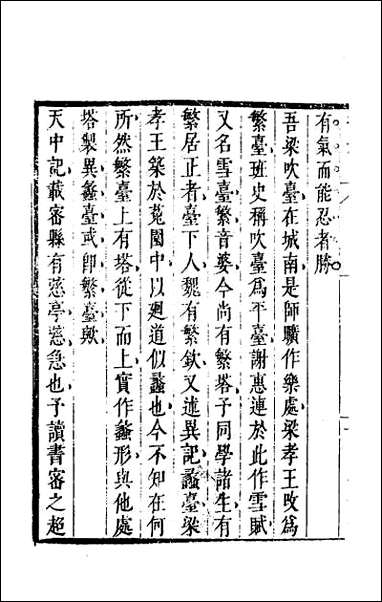 有氣而能忍者勝
吾梁吹臺在城南是師曠作樂處梁孝王改爲
繁臺班史稱吹臺爲平臺謝惠連於此作雪賦
又名雪臺繁音婆今尚有繁塔子同學諸生有
繁居正者臺下人魏有繁欽又述異記蠡臺梁
孝王築於菟園中以廻道似蠡也今不知在何
所然繁臺上有塔從下而上實作螽形與他處
塔製異螽臺或卽繁臺歟
天中記載密縣有㥛亭㥛急也予讀書密之超